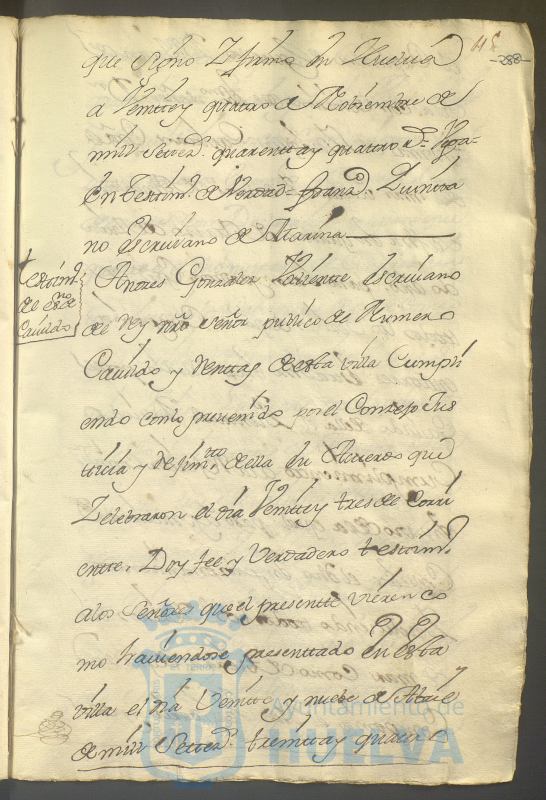 115
-288-
que signo Y firmo En Huelva
a Veintte y quatro de Nobiembre de
mill Settez.s quarentta y quattro D.s Vega=
En testim.o de Verdad= Fran.co
no Escribano de Marina
testim.o
de es.no de
Cavildo
Andres Gonzalez Valiente Escribano
del Rey nrô Señor publico del Numero
Cavildo y Renttas de esta villa Cumpli
endo con lo prevenido por el Conzejo Jus
ticia y Rejim.tto de ella En Acuerdo que
Zelebraron el dia Veintte y tres de Corri
entte. Doy fee y Verdadero testtim.o
a los Señores que el presentte vieren co
mo haviendose presenttado En Esta
villa el dia Veintte y nuebe de Abril
de mill Settez.s treintta y quattro
Ayuntamiento de
HUELVA